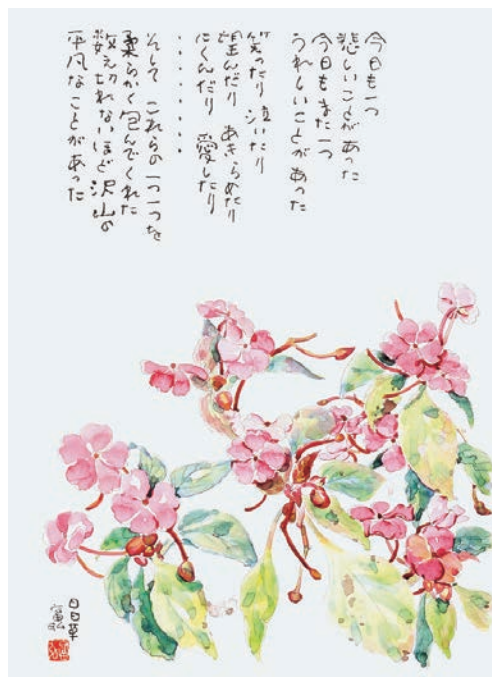 今日も一つ
悲しいことがあった
今日もまた一つ
うれしいことがあった
笑ったり 泣いたり
望んだり あきらめたり
にくんだり 愛したり
・・・・・・・・
そして これらの一つ一つを
柔らかく包んでくれた
数え切れないほど沢山の
平凡なことがあった
日日草
富弘